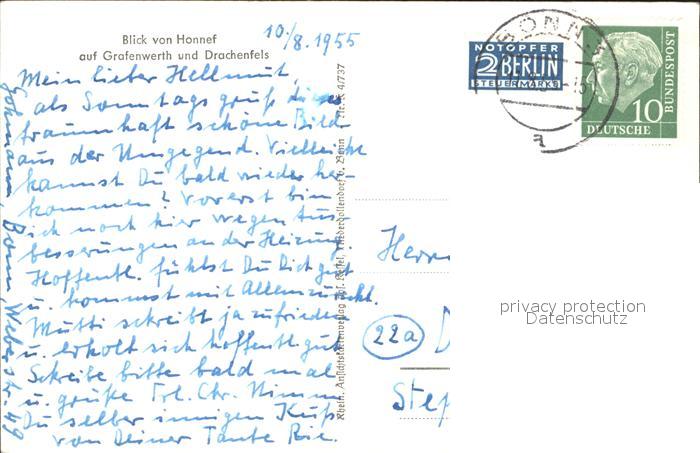 10./8. 1955
Blick von Honnef
auf Grafenwerth und Drachenfels
Mein lieber Hellmut,
als Sonntagsgruß dieses
traumhaft schöne Bild
aus der Umgegend. Vielleicht
kannst Du bald wieder her-
kommen? Vorerst bin
ich noch hier wegen Aus-
besserungen an der Heizung.
Hoffentl. fühlst Du Dich gut
u. kommst mit Allem zurecht.
Mutti schreibt ja zufrieden
u. erholt sich hoffentl. gut.
Schreibe bitte bald mal
u. grüße Frl. Chr. Nimm
Du selber innigen Kuß
von Deiner Tante
Bonn, Weberstr. 49
Rhein. Ansichtskartenverlag Niederdollendorf b. Bonn Nr. 4/737
NOTOPFER
2 BERLIN
STEUERMARKE
BONN
DEUTSCHE BUNDESPOST
10
Herrn
22a
privacy protection
Datenschutz